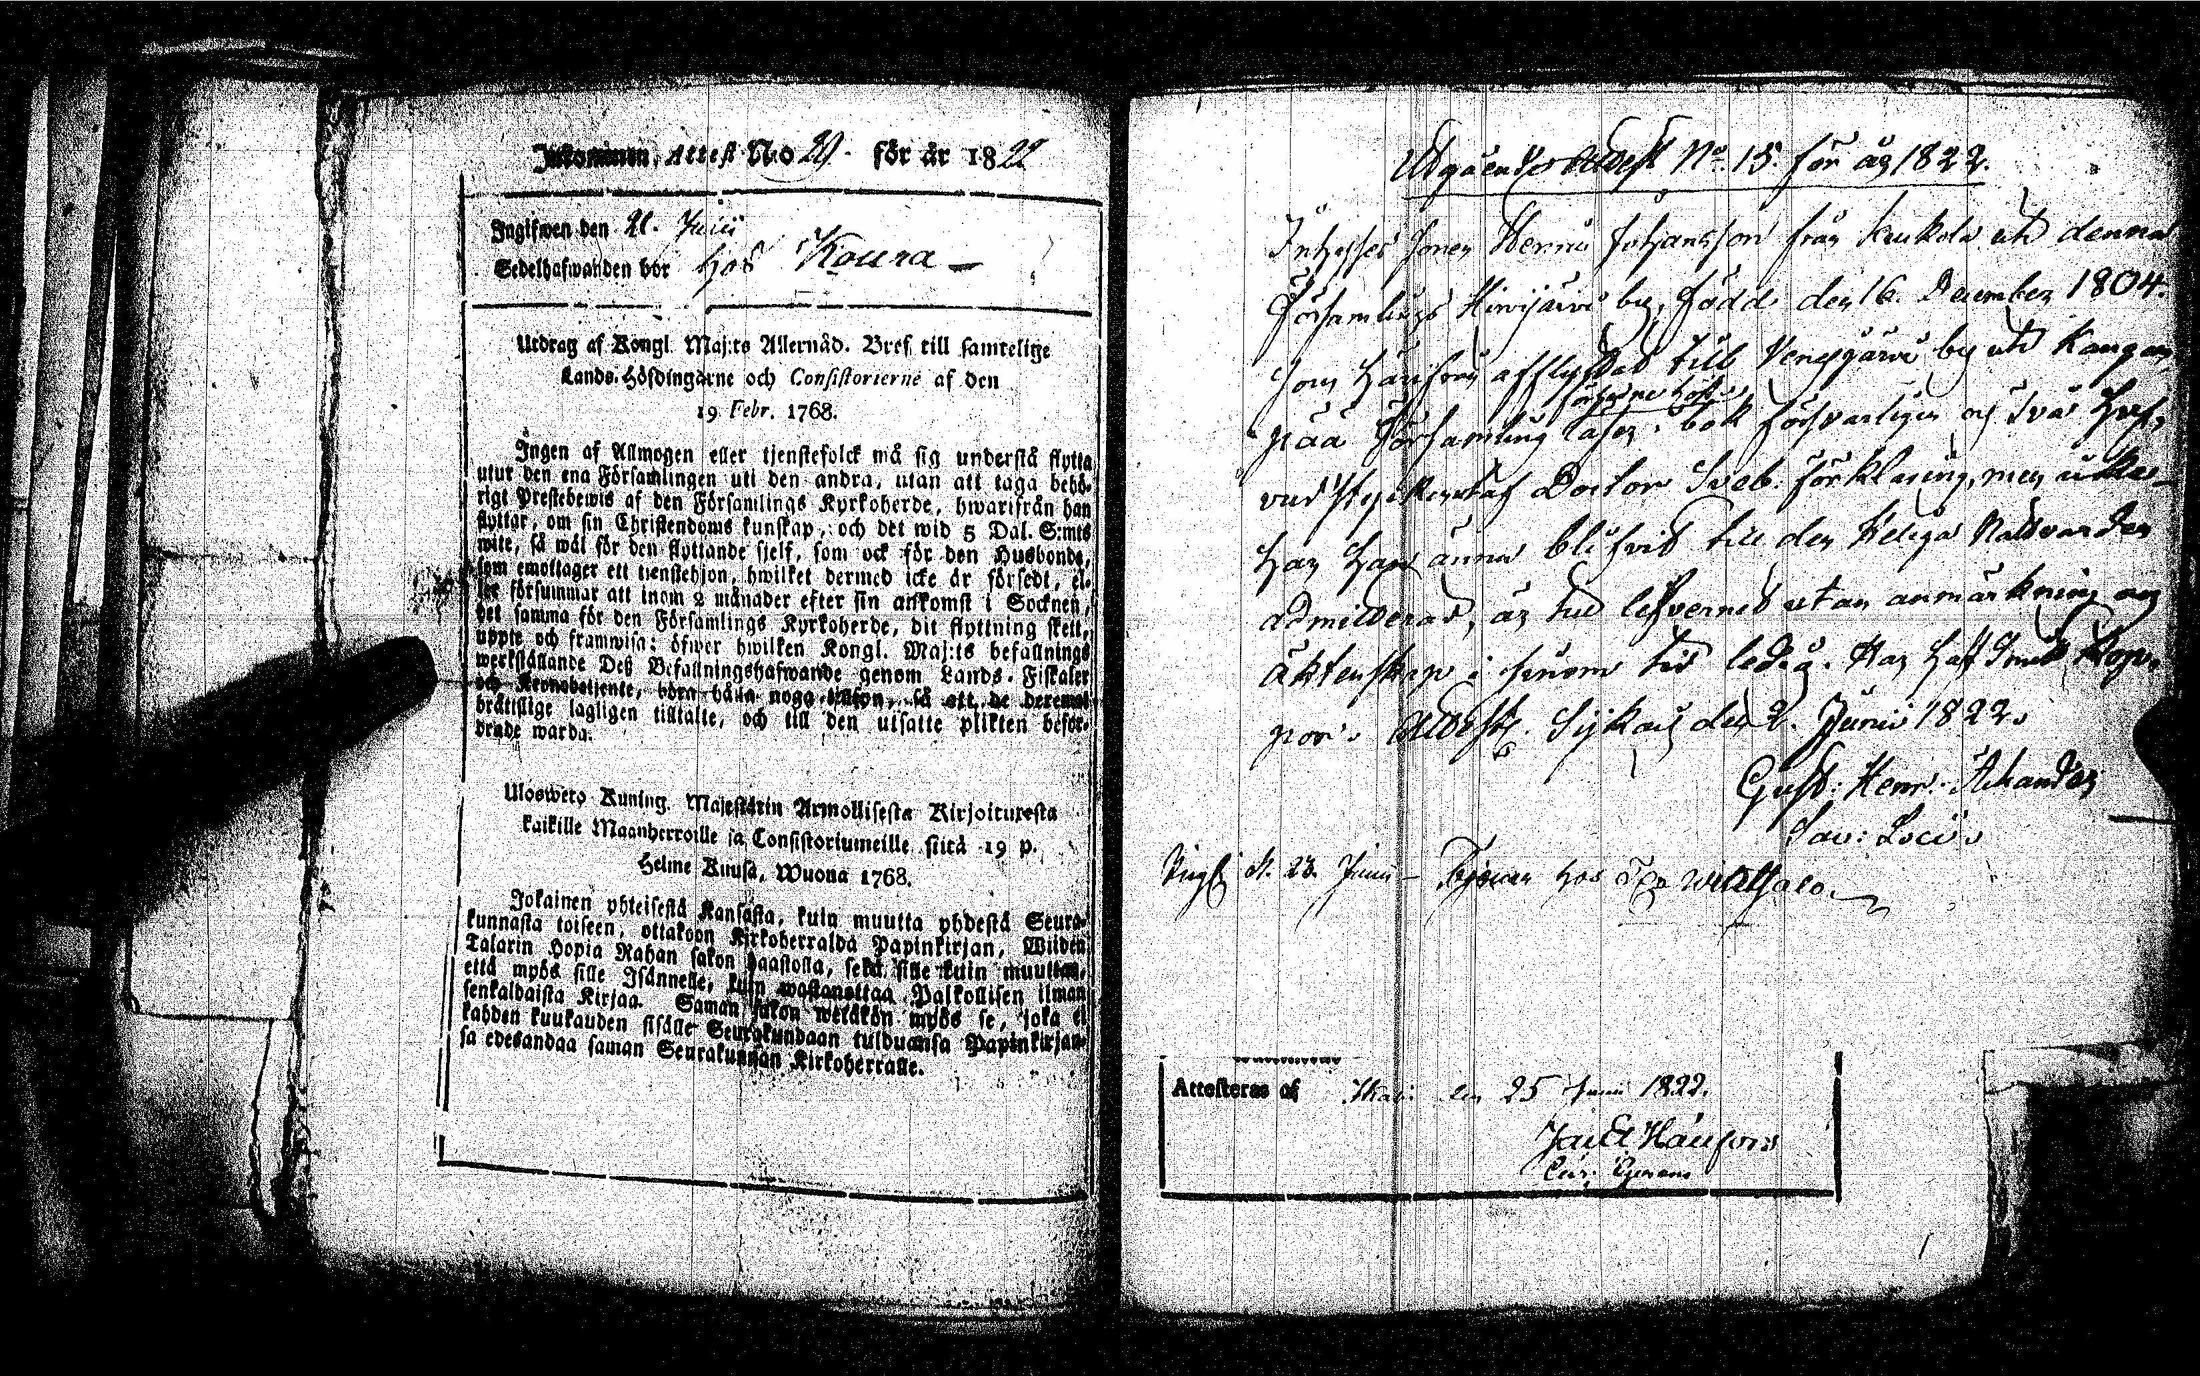 Inkommen, Attest No 29. för år 1822
Ingifwen den 21. Junii
Sedelhafwanden bor hos Koura
Utdrag af Kongl. Maj:ts Allernåd. Bref till samtelige
Lands-Höfdingarne och Consistorierne af den
19 Febr. 1768.
Ingen af Allmogen eller tjenstefolck må sig understå flytta
utur den ena Församlingen uti den andra, utan att taga behö-
rigt Prestebewis af den Församlings Kyrkoherde, hwarifrån han
flyttar, om sin Christendoms kunskap, och det wid 5 Dal. S:mts
wite, så wäl för den flyttande sjelf, som ock för den Husbonde,
som emottager ett tienstehjon, hwilket dermed icke är försedt, el-
ler försummar att inom 2 månader efter sin ankomst i Socknen,
det samma för den Församlings Kyrkoherde, dit flyttning skett,
uppte och framwisa; öfwer hwilken Kongl. Maj:ts befallnings
werkställande Deß Befallningshafwande genom Lands-Fiskaler
och Kronobetjente, böra hålla noga tillsyn, så att de deremot
bråttslige lagligen tilltalte, och till den utsatte plikten befor-
drade warda.
Ulosweto Kuning. Majestätin Armollisesta Kirjoituxesta
kaikille Maanherroille ja Consistoriumeille, siitä 19 p.
Helme Kuusa, Wuona 1768.
Jokainen yhteisestä Kansasta, kuin muutta yhdestä Seura-
kunnasta toiseen, ottakoon Kirkoherralda Papinkirjan, Wiiden
Talarin Hopia Rahan sakon haastolla, sekä sille kuin muuttaa,
että myös sille Isännelle, kuin wastanottaa Palkollisen ilman
senkaldaista Kirjaa. Saman sakon wetäkön myös se, joka ei
kahden kuukauden sisälle Seurakundaan tulduansa Papinkirjan-
sa edesandaa saman Seurakunnan Kirkoherralle.
Utgående Attest No. 15. för år 1822.
Inhyses Sonen Henric Johansson från Kuckola uti denna
Församlings Hirvijärvi by, född den 16. December 1804.
som härifrån afflyttat till Venesjärvi by uti Kangan-
pää Församling läser i bok försvarligen och Svå
Doctor Sveb. förklaring, men icke
har han ännu blifvit till den Heliga Nattvarden
admitterad, är till lefvernet utan anmärkning och
äktenskap i hänom tid ledig. Har haft Smitt Kop-
por. Attest. Sijkais den 2. Junii 1822.
Gust: Henr:
Sac: Loci.
Ingf d. 23. Junii – Tjenar hos
Attesteras af den 25 Junii 1822.